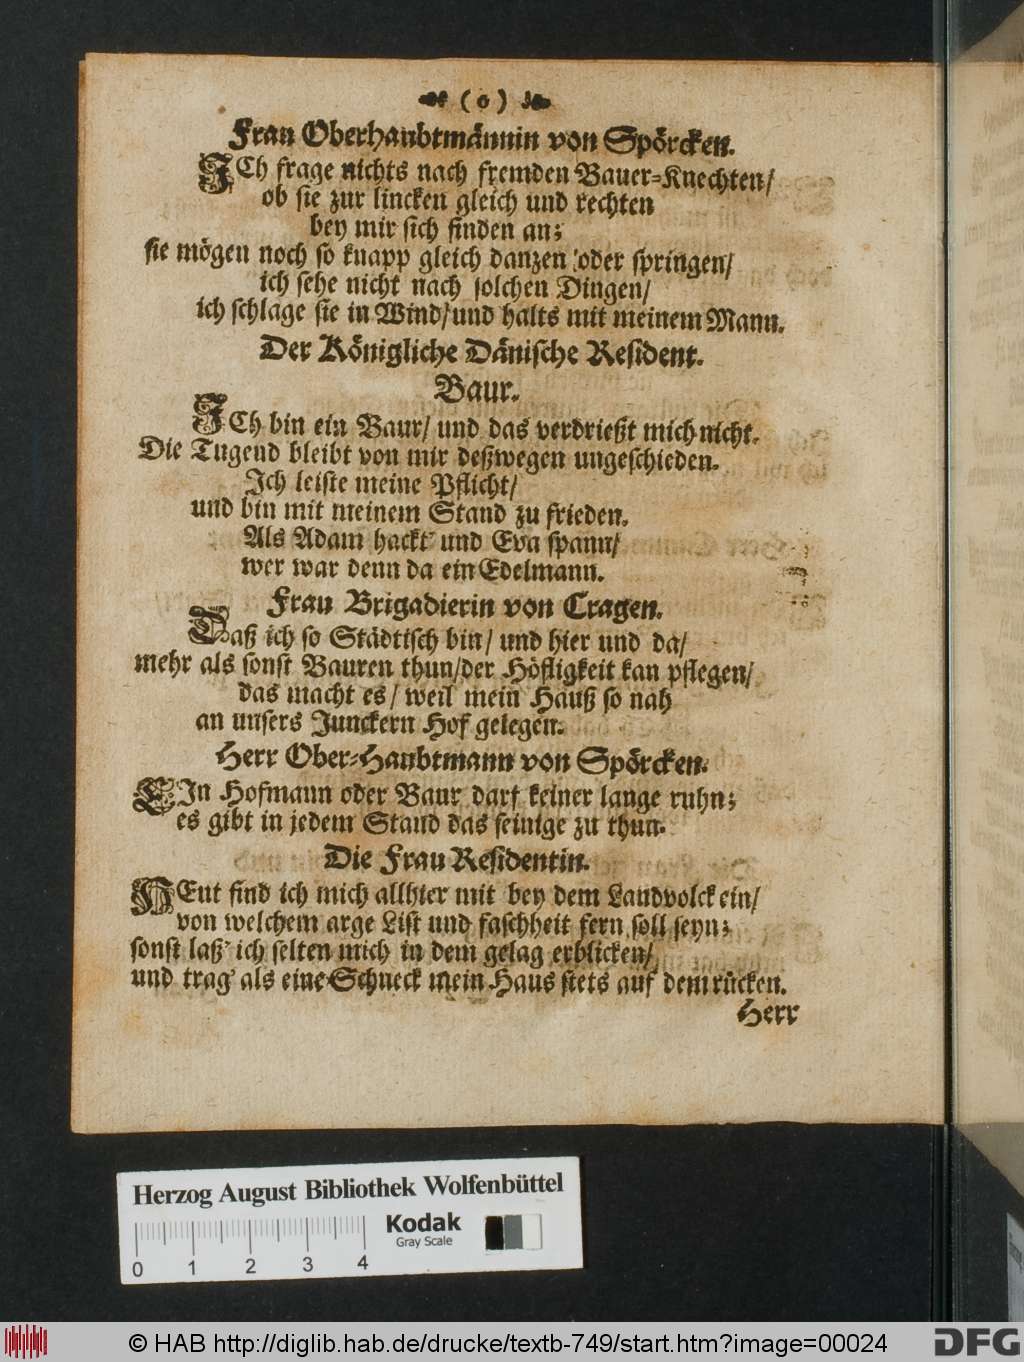 ( o )
Frau Oberhaubtmännin von Spörcken.
ICh frage nichts nach fremden Bauer-Knechten/
ob sie zur lincken gleich und rechten
bey mir sich finden an;
sie mögen noch so knapp gleich danzen oder springen/
ich sehe nicht nach solchen Dingen/
ich schlage sie in Wind/und halts mit meinem Mann.
Der Königliche Dänische Resident.
Baur.
ICh bin ein Baur/ und das verdrießt mich nicht.
Die Tugend bleibt von mir deßwegen ungeschieden.
Ich leiste meine Pflicht/
und bin mit meinem Stand zu frieden.
Als Adam hackt' und Eva spann/
wer war denn da ein Edelmann.
Frau Brigadierin von Cragen.
Daß ich so Städtisch bin/ und hier und da/
mehr als sonst Bauren thun/der Höfligkeit kan pflegen/
das macht es/ weil mein Hauß so nah
an unsers Junckern Hof gelegen.
Herr Ober-Haubtmann von Spörcken.
EIn Hofmann oder Baur darf keiner lange ruhn;
es gibt in jedem Stand das seinige zu thun.
Die Frau Residentin.
HEut find ich mich allhier mit bey dem Landvolck ein/
von welchem arge List und faschheit fern soll seyn;
sonst laß' ich selten mich in dem gelag erblicken/
und trag' als eine Schneck mein Haus stets auf dem rücken.
Herr
Herzog August Bibliothek Wolfenbüttel
Kodak
Gray Scale
0 1 2 3 4
© HAB http://diglib.hab.de/drucke/textb-749/start.htm?image=00024
DFG